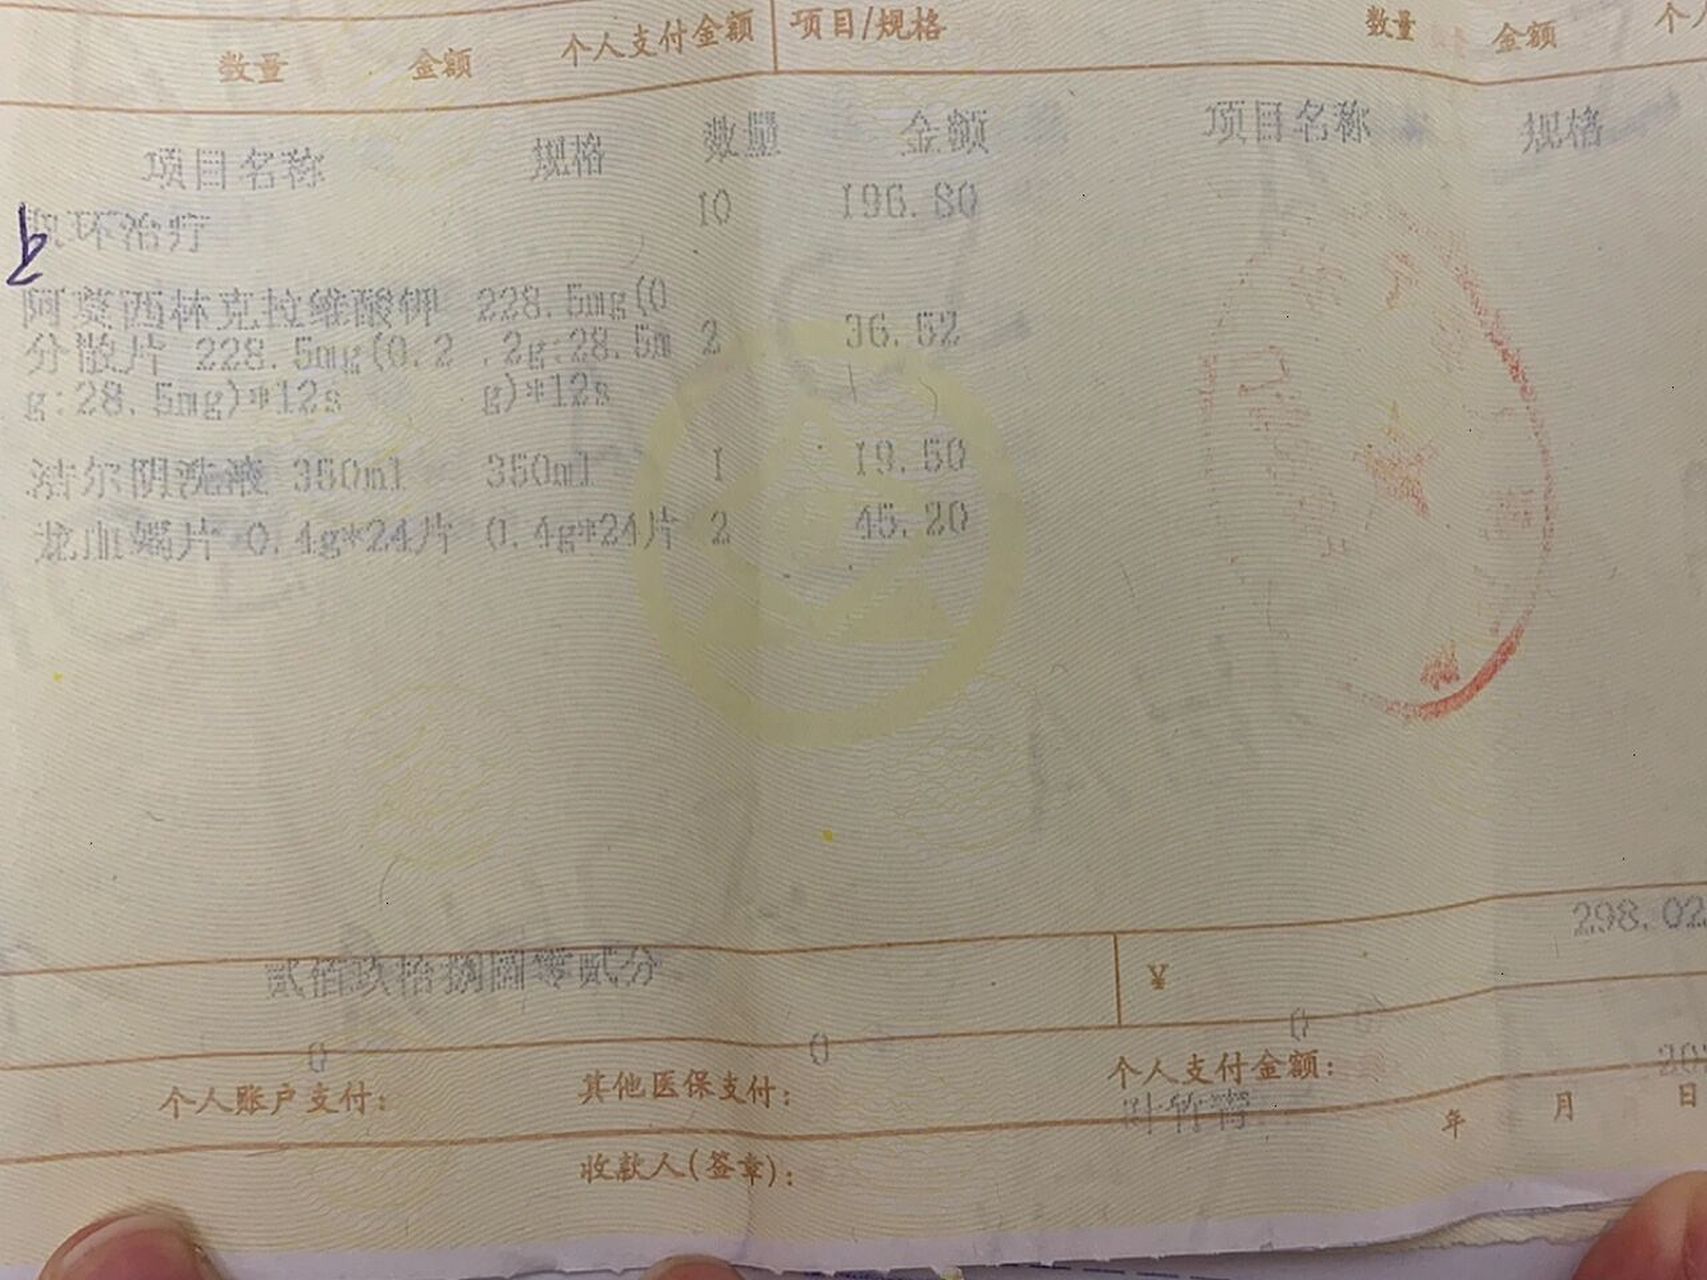 数量 金额 个人支付金额 项目/规格 数量 金额 个人
项目名称 规格 数量 金额 项目名称 规格
环治疗 10 196.80
阿莫西林克拉维酸钾 228.5mg(0
分散片 228.5mg(0.2 .2g:28.5m 2 36.52
g:28.5mg)*12s g)*12s
洁尔阴洗液 350ml 350ml 1 19.50
龙血竭片 0.4g*24片 0.4g*24片 2 45.20
298.02
贰佰玖拾捌圆零贰分 ¥
0 0 0
个人账户支付: 其他医保支付: 个人支付金额:
年 月 日
收款人(签章):